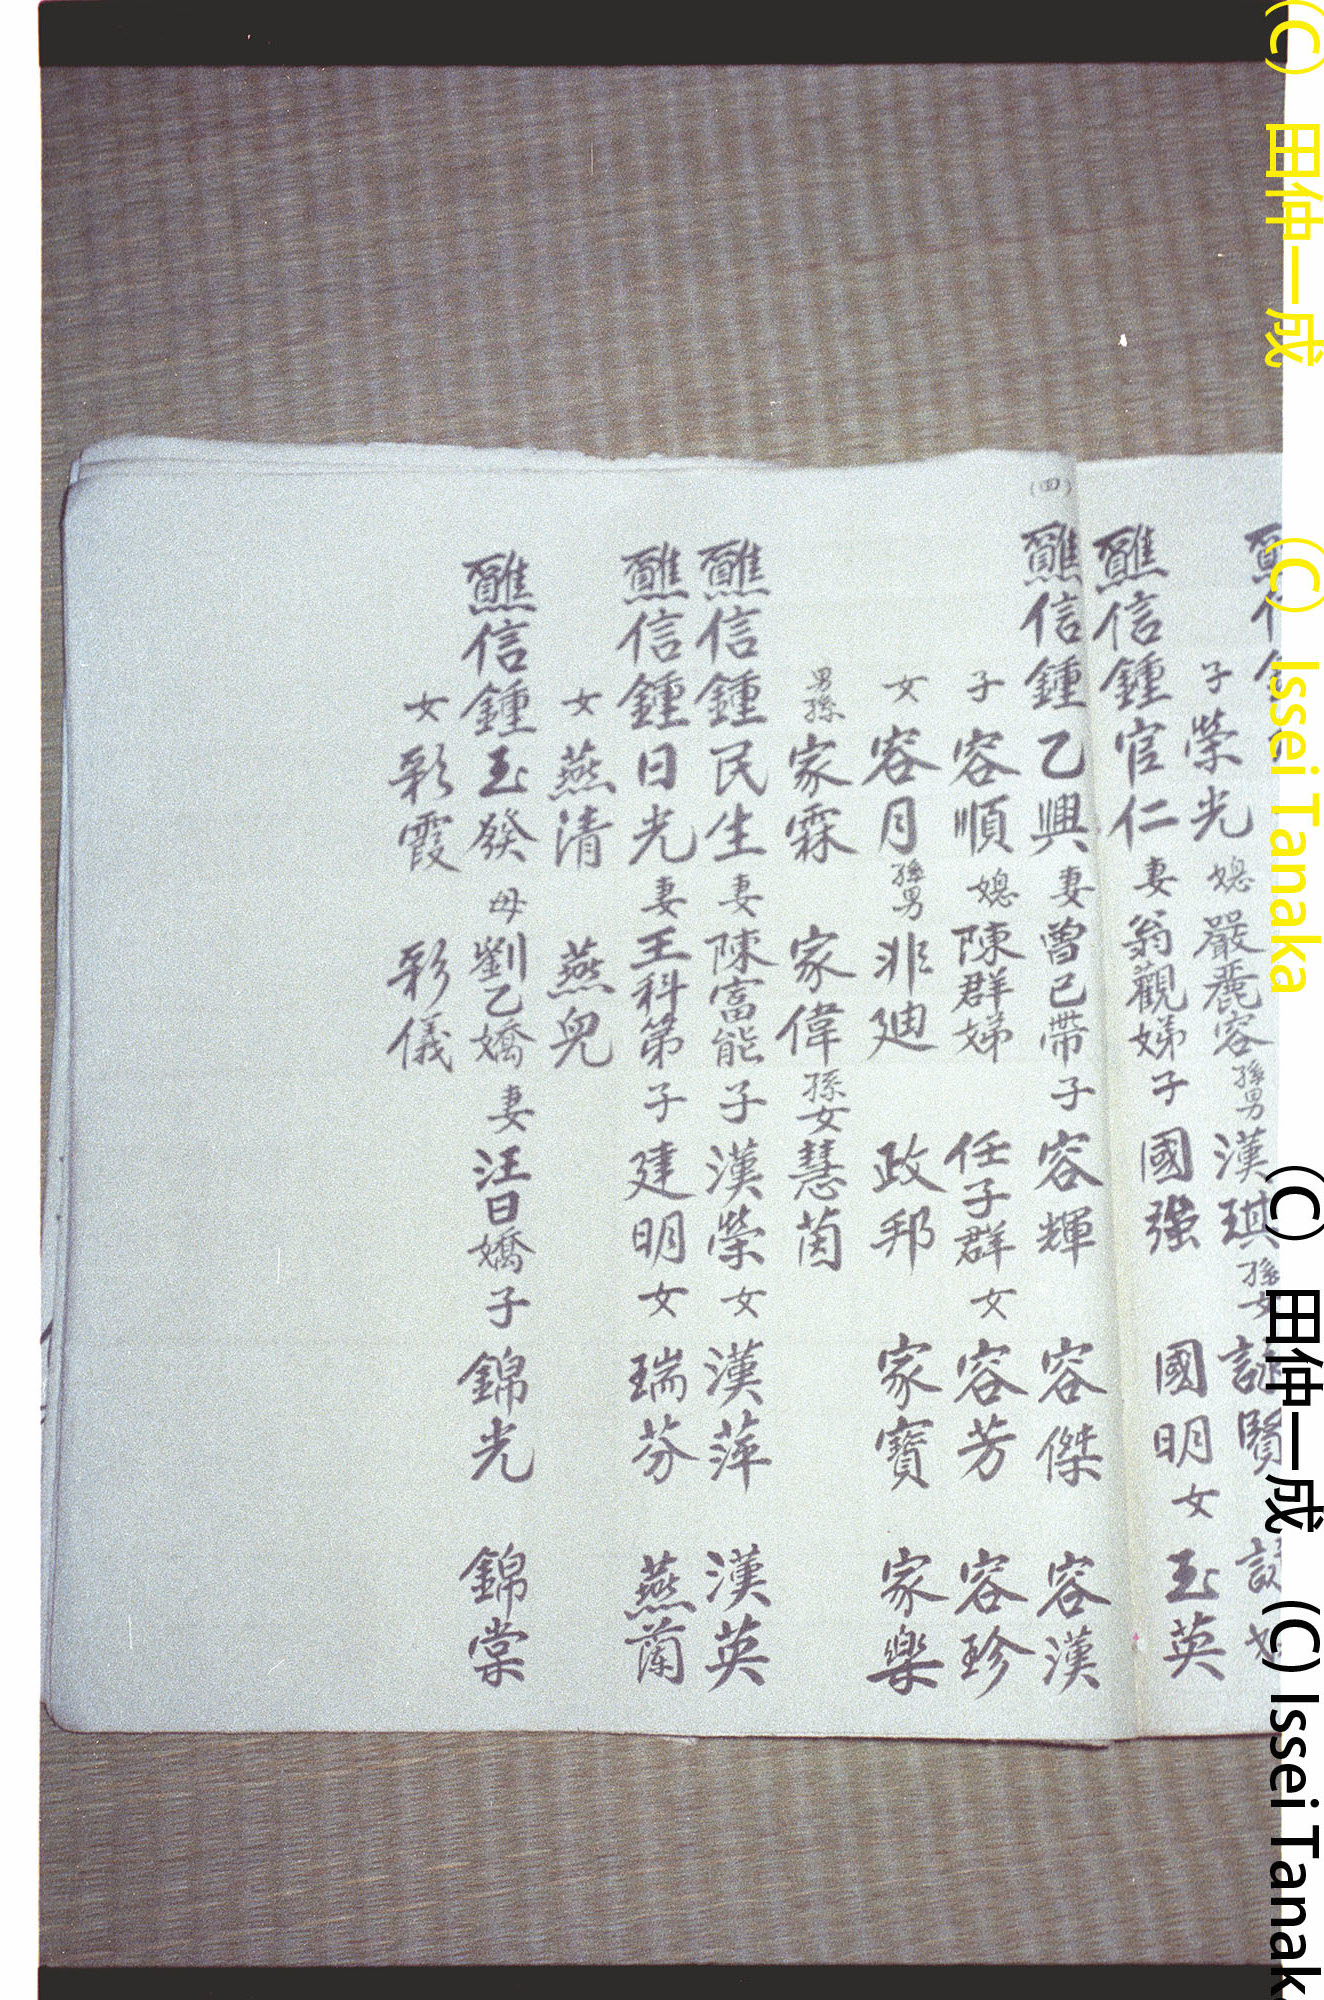 信
子榮光媳嚴麗容孫男漢琪孫女賢
醮信鍾官仁妻翁觀娣子國强國明女玉英
(四)
醮信鍾乙興妻曾已帶子容輝容傑容漢
子容順媳陳群娣任子群女容芳容珍
女容月孫男非廸政邦家寶家樂
男孫家霖家偉孫女慧茵
醮信鍾民生妻陳富能子漢榮女漢萍漢英
醮信鍾日光妻王科第子建明女瑞芬燕蘭
女燕清燕兒
醮信鍾玉發母劉乙嬌妻汪日嬌子錦光錦棠
女彩霞彩儀
(C) 田仲一成 (C) Issei Tanaka
(C) 田仲一成 (C) Issei Tanak